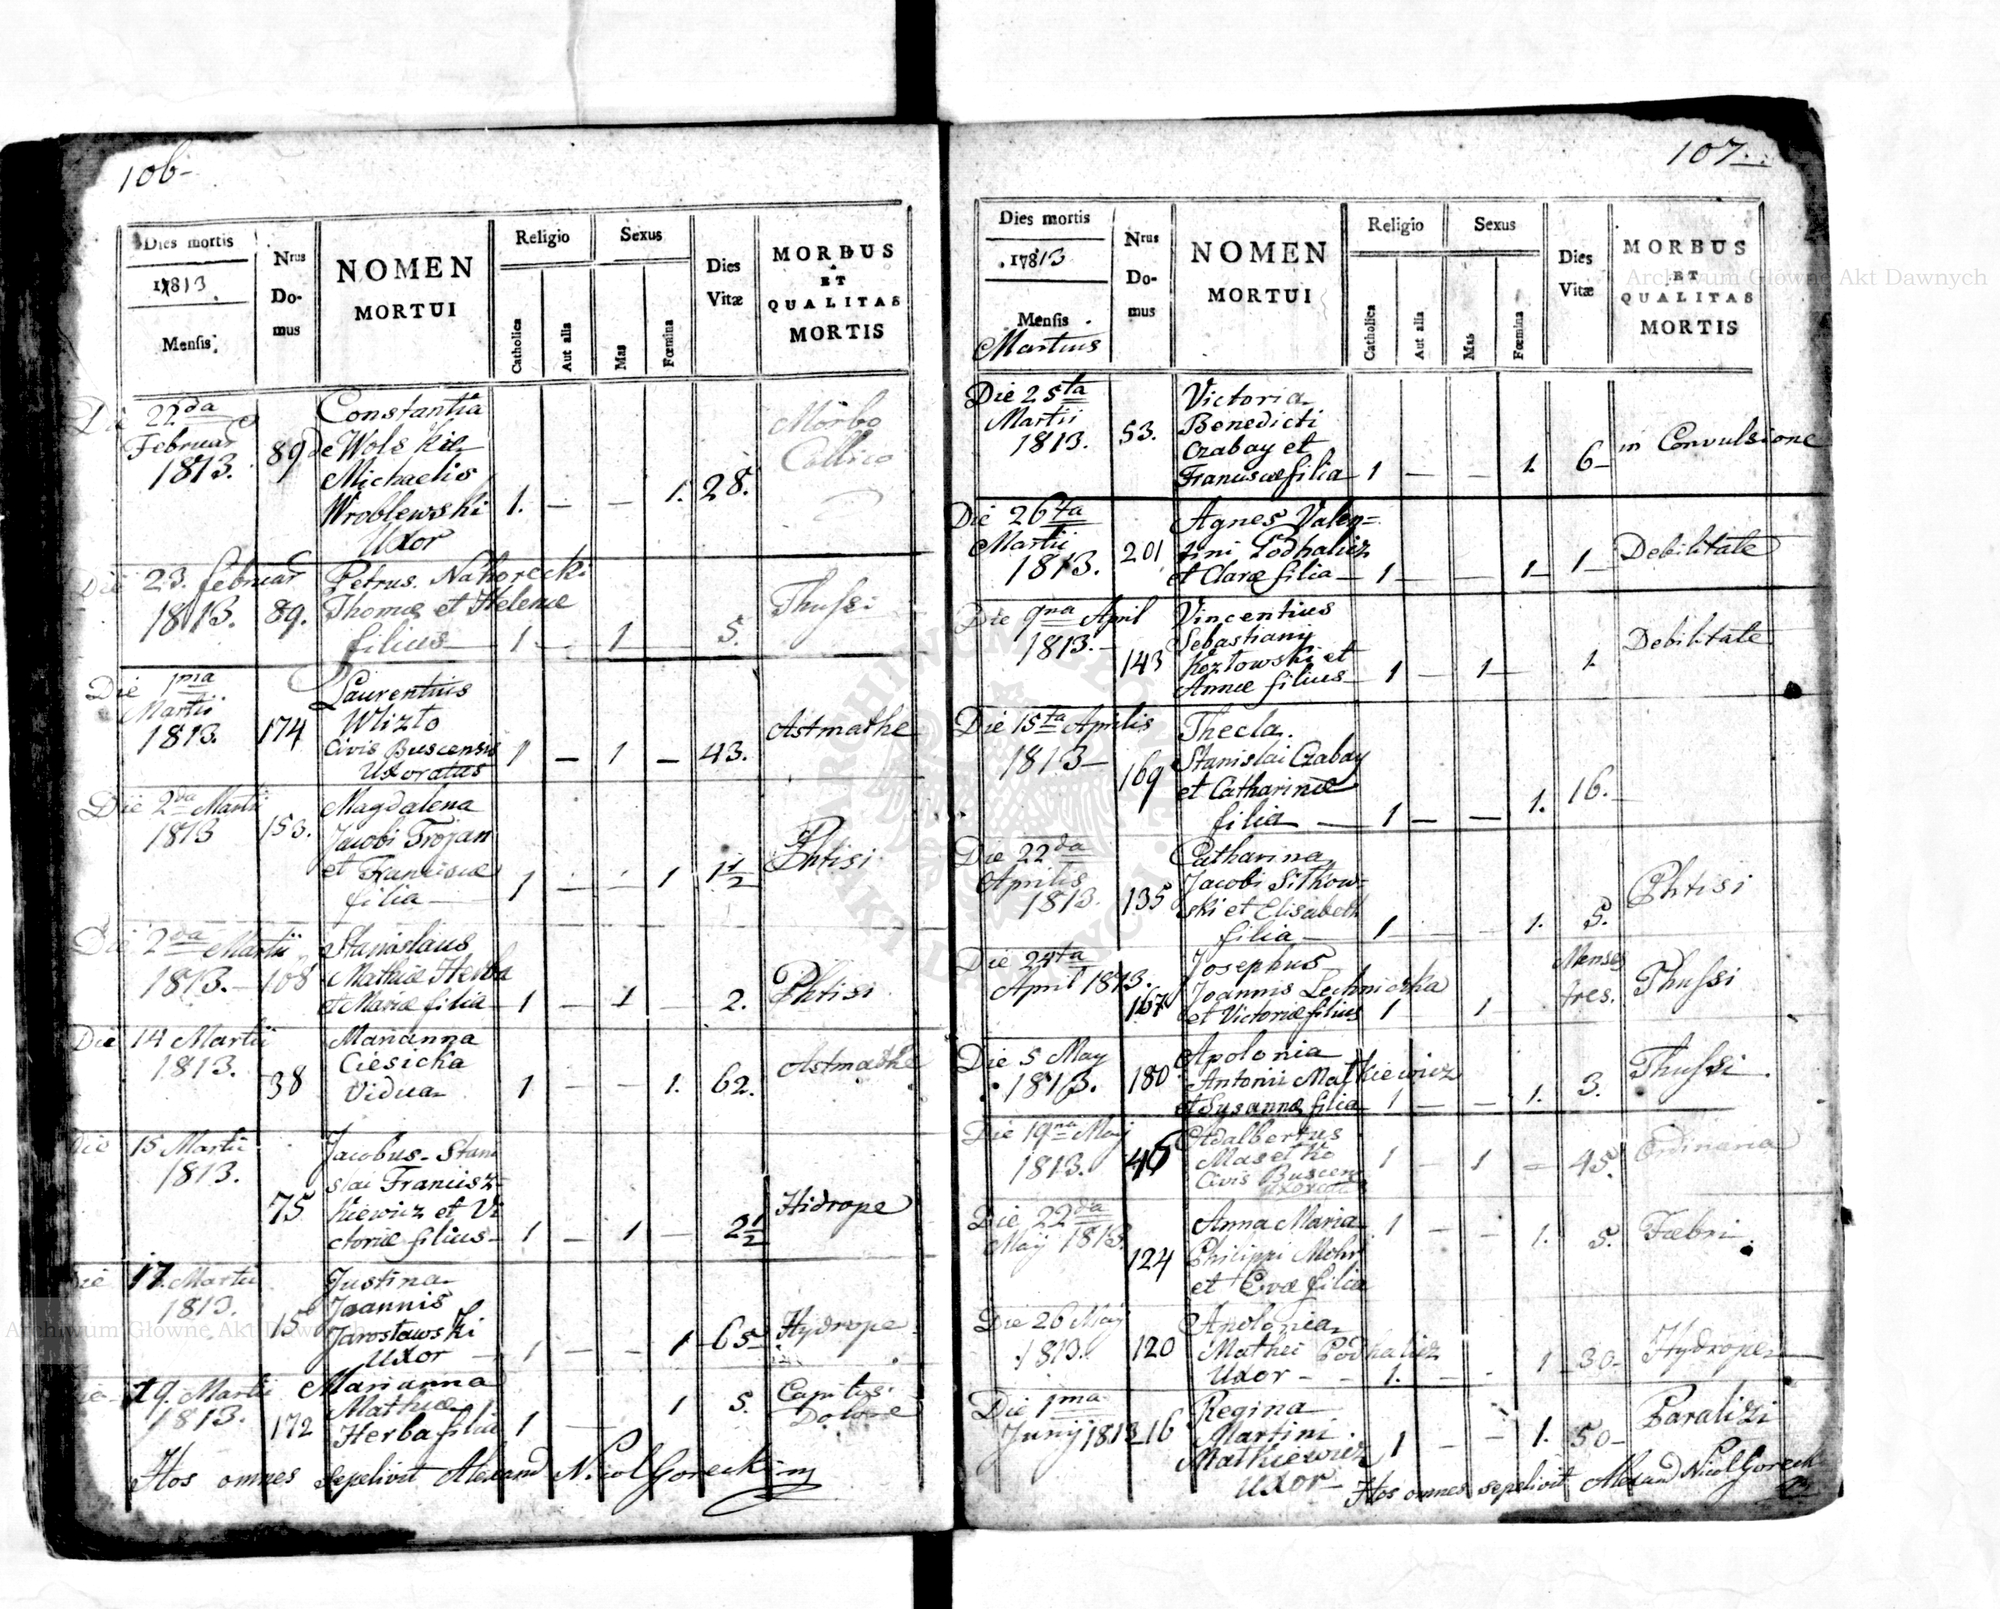 106
Dies mortis
1813
Mensis
Nrus
Do-
mus
NOMEN
MORTUI
Religio
Catholica
Aut alia
Sexus
Mas
Fœmina
Dies
Vitæ
MORBUS
ET
QUALITAS
MORTIS
Die 22da
Februar
1813.
89
Constantia
de Wolskie
Michaelis
Wroblewski
Uxor
1. — — 1. 28.
Morbo
Collico
Die 23. Februar
1813.
89.
Petrus Nahorecki
Thomæ et Helenæ
filius
1 — 1 — 5.
Thussi
Die 1ma
Martii
1813.
174
Laurentius
Wlizto
Civis Buscensis
Uxoratus
1 — 1 — 43.
Astmathe
Die 2da Martii
1813
153.
Magdalena
Jacobi Trojan
et Franciscæ
filia
1 — — 1 1 1/2
Phtisi
Die 2da Martii
1813.
108
Stanislaus
Mathiæ Herba
et Mariæ filia
1 — 1 — 2.
Phtisi
Die 14 Martii
1813.
38
Marianna
Ciesicka
Vidua
1 — — 1. 62.
Astmathe
Die 15 Martii
1813.
75
Jacobus Stani
slai Francisz-
kiewicz et Vi
ctoriæ filius
1 — 1 — 2 1/2
Hidrope
Die 17. Martii
1813.
15
Justina
Joannis
Jarosławski
Uxor
1 — — 1 65
Hydrope
Die 19. Martii
1813.
172
Marianna
Mathiæ
Herba filia
1 — 1 5.
Capitis
Dolore
Hos omnes sepelivit Alexand Nicol Gorecki
107
Dies mortis
1813
Mensis
Martius
Nrus
Do-
mus
NOMEN
MORTUI
Religio
Catholica
Aut alia
Sexus
Mas
Fœmina
Dies
Vitæ
MORBUS
ET
QUALITAS
MORTIS
Die 25ta
Martii
1813.
53.
Victoria
Benedicti
Czabay et
Franciscæ filia
1 — — 1. 6
in Convulsione
Die 26ta
Martii
1813.
201
Agnes Valen=
tini Podhalicz
et Claræ filia
1 — — 1 1
Debilitate
Die 9na April
1813.
143
Vincentius
Sebastiany
Kozłowski et
Annæ filius
1 — 1 — 1
Debilitate
Die 15ta Aprilis
1813
169
Thecla
Stanislai Czabay
et Catharinæ
filia
1 — — 1. 16.
Die 22da
Aprilis
1813.
135
Catharina
Jacobi Sitkow-
ski et Elisabeth
filia
1 — — 1. 5.
Phtisi
Die 24ta
April 1813.
167
Josephus
Joannis Lechnicka
et Victoriæ filius
1 1
Menses
tres.
Thussi
Die 5 May
1813.
180
Apolonia
Antonii Matkiewicz
et Susannæ filia
1 — — 1. 3.
Thussi
Die 19na May
1813.
45
Adalbertus
Masetko
Civis Buscens
uxoratus
1 — 1 — 45.
Ordinaria
Die 22da
Maij 1813.
124
Anna Maria
Philippi Mohr
et Evæ filia
1 — — 1. 5.
Fæbri
Die 26 Maj
1813.
120
Apolonia
Mathei Podhalicz
Uxor
1. — — 1 30
Hydrope
Die 1ma
Junij 1813
16
Regina
Martini
Mathiewicz
Uxor
1 — — 1. 50
Paralizi
Hos omnes sepelivit Alexand Nicol Goreck
Archiwum Główne Akt Dawnych
Archiwum Główne Akt Dawnych